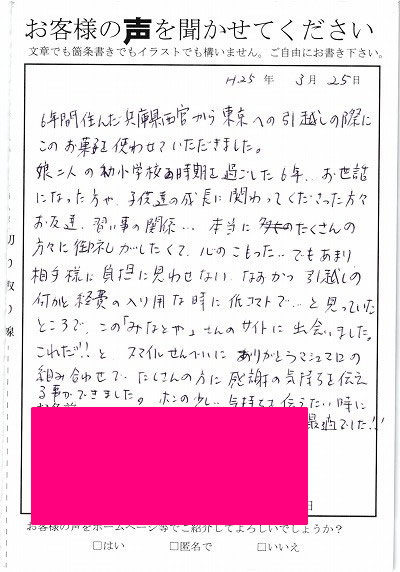 お客様の声を聞かせてください
文章でも箇条書きでもイラストでも構いません。ご自由にお書き下さい。
H.25 年 3月 25日
6年間住んだ兵庫県西宮から東京への引越しの際に
このお菓子を使わせていただきました。
娘二人の幼小学校時期を過ごした6年、お世話
になった方や、子供達の成長に関わってくださった方々
お友達、習い事の関係… 本当にたくさんの
方々に御礼がしたくて、心のこもった…でもあまり
相手様に負担に思わせない、なおかつ引越しの
何かと経費の入り用な時に低コストで…と見っていた
ところで、この「みなとや」さんのサイトに出会いました。
これだ!!と、スマイルせんべいにありがとうマシュマロの
組み合わせで、たくさんの方に感謝の気持ちを伝え
る事ができました。ホンの少し、気持ちを伝えたい時に
最適でした!!
切り取り線
日
お客様の声をホームページ等でご紹介してよろしいでしょうか?
□はい □匿名で □いいえ